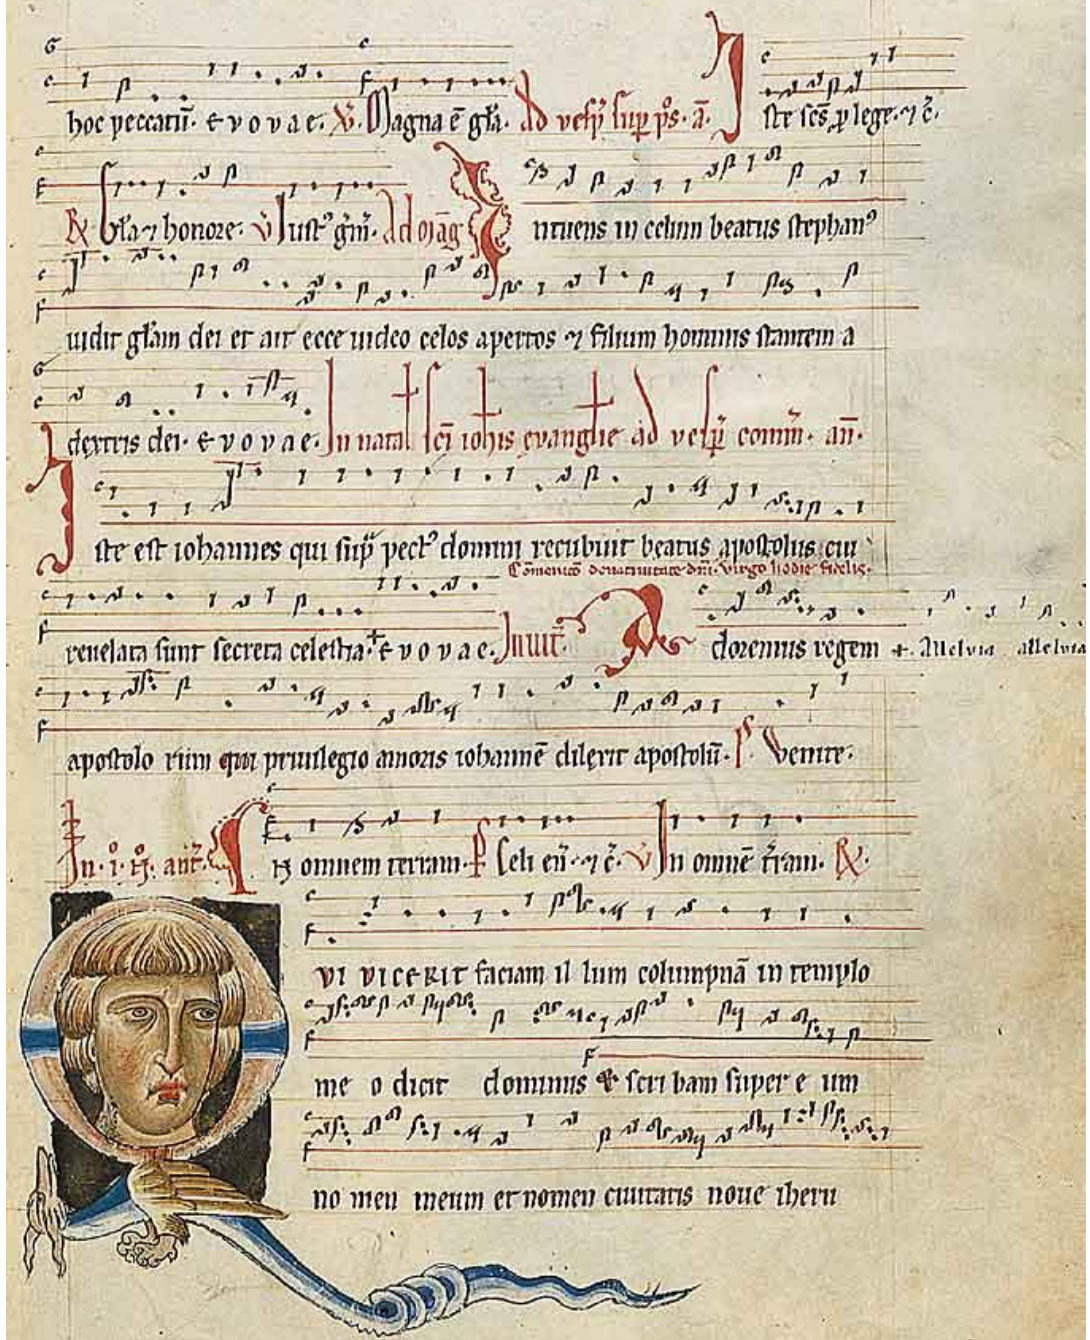 hoc peccatū· e v o v a e· V̄· Magna ē gl̄a· Ad vesp̄ sup̄ p̄s· a· Iste sc̄s p̱ lege· ⁊ c̄·
R̸ Gl̄a ⁊ honore· V̄ Iust⁹ gm̄· Ad mag̅ Intuens in celum beatus stephan⁹
uidit gl̄am dei et ait ecce uideo celos apertos ⁊ filium hominis stantem a
dextris dei· e v o v a e· In natal sc̄i ioh̄is evangl̄ie ad vesp̄ comm̄· an̄·
Iste est iohannes qui sup̄ pect⁹ domini recubuit beatus apostolus cui
Cōmemco de natiuitate dn̄i· Virgo hodie fidelis·
reuelata sunt secreta celestia· + e v o v a e· Inuit̄· Adoremus regem +· Allelvia allelvia
apostolo rum qui priuilegio amoris iohannē dilexit apostolū· p̄s· Venite·
In· i· n̄· ant̄· In omnem terram· p̄s Celi en̄· ⁊ c̄· V̄ In omnē t̄ram· R̸·
QVI VICERIT faciam il lum columpnā in templo
me o dicit dominus et scri bam super e um
no men meum et nomen ciuitatis noue iheru